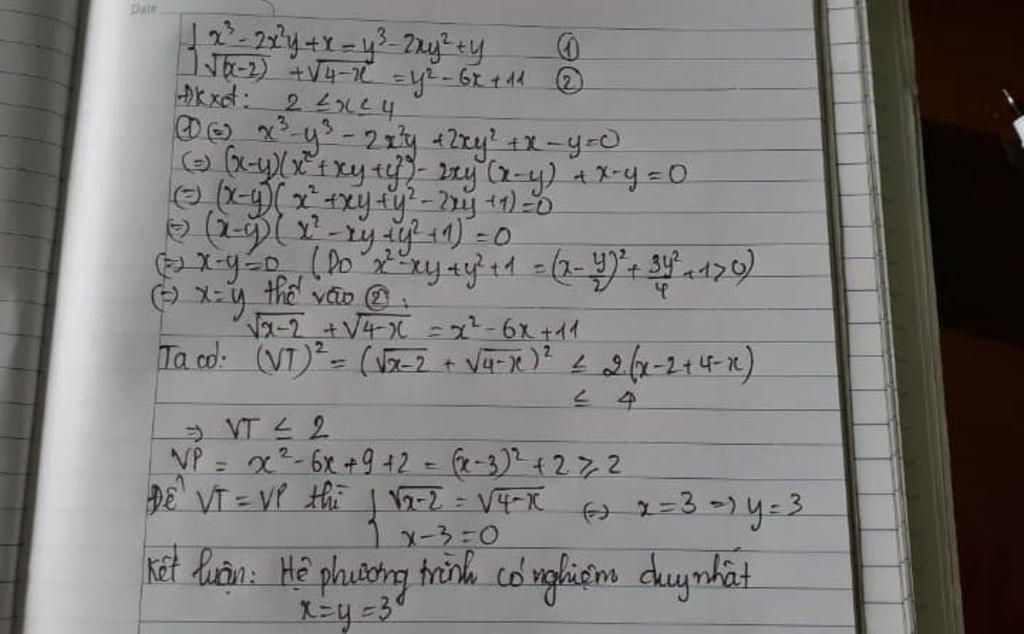 Date
x³ - 2x²y + x = y³ - 2xy² + y ①
√(x-2) + √4-x = y² - 6x + 11 ②
ĐKXĐ: 2 ≤ x ≤ 4
① (=) x³ - y³ - 2x²y + 2xy² + x - y = 0
(=) (x-y)(x² + xy + y²) - 2xy (x-y) + x-y = 0
(=) (x-y)( x² + xy + y² - 2xy + 1) = 0
(=) (x-y)( x² - xy + y² + 1) = 0
(=) x-y = 0 (Do x² - xy + y² + 1 = (x - y/2)² + 3y²/4 + 1 > 0)
(=) x = y thế vào ②:
√x-2 + √4-x = x² - 6x + 11
Ta có: (VT)² = (√x-2 + √4-x)² ≤ 2.(x-2+4-x)
≤ 4
=> VT ≤ 2
VP = x² - 6x + 9 + 2 = (x-3)² + 2 ≥ 2
Để VT = VP thì { √x-2 = √4-x (=) x = 3 => y = 3
x-3 = 0
Kết luận: Hệ phương trình có nghiệm duy nhất
x = y = 3